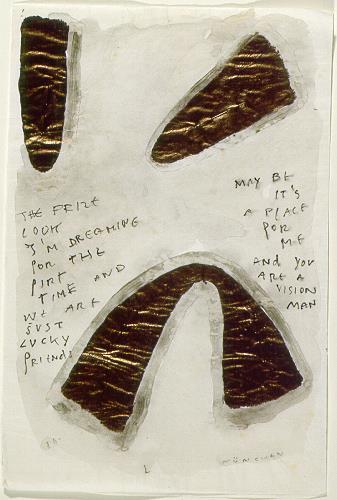 THE FRIZE
LOOK
I'M DREAMING
FOR THE
FIRT
TIME AND
WE ARE
JUST
LUCKY
FRIENDS
MAY BE
IT'S
A PLACE
FOR
ME
AND YOU
ARE A
VISION
MAN
MÜNCHEN